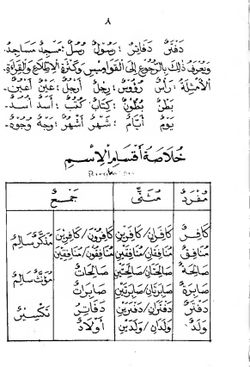 ٨
دَفْتَرٌ دَفَاتِرُ : رَسُولٌ رُسُلٌ : مَسْجِدٌ مَسَاجِدُ
وَيُعْرَفُ ذٰلِكَ بِالرُّجُوعِ إِلَى الْقَوَامِيسِ وَكَثْرَةِ الْإِطِّلَاعِ وَالْقِرَاءَةِ.
الْأَمْثِلَةُ : رَأْسٌ رُؤُوسٌ : رَجُلٌ أَرْجُلٌ : عَيْنٌ أَعْيُنٌ.
بَطْنٌ بُطُونٌ : كِتَابٌ كُتُبٌ : أَسَدٌ أُسُدٌ.
يَوْمٌ أَيَّامٌ : شَهْرٌ أَشْهُرٌ : وَجْهٌ وُجُوهٌ.
خُلَاصَةُ أَقْسَامِ الْإِسْمِ
مُفْرَدٌ مُثَنًّى جَمْعٌ
كَافِرٌ كَافِرَانِ/كَافِرَيْنِ كَافِرُونَ/كَافِرِينَ مُذَكَّرٌ سَالِمٌ
مُنَافِقٌ مُنَافِقَانِ/مُنَافِقَيْنِ مُنَافِقُونَ/مُنَافِقِينَ
صَالِحَةٌ صَالِحَتَانِ/صَالِحَتَيْنِ صَالِحَاتٌ مُؤَنَّثٌ سَالِمٌ
صَابِرَةٌ صَابِرَتَانِ/صَابِرَتَيْنِ صَابِرَاتٌ
دَفْتَرٌ دَفْتَرَانِ/دَفْتَرَيْنِ دَفَاتِرُ تَكْسِيرٌ
وَلَدٌ وَلَدَانِ/وَلَدَيْنِ أَوْلَادٌ